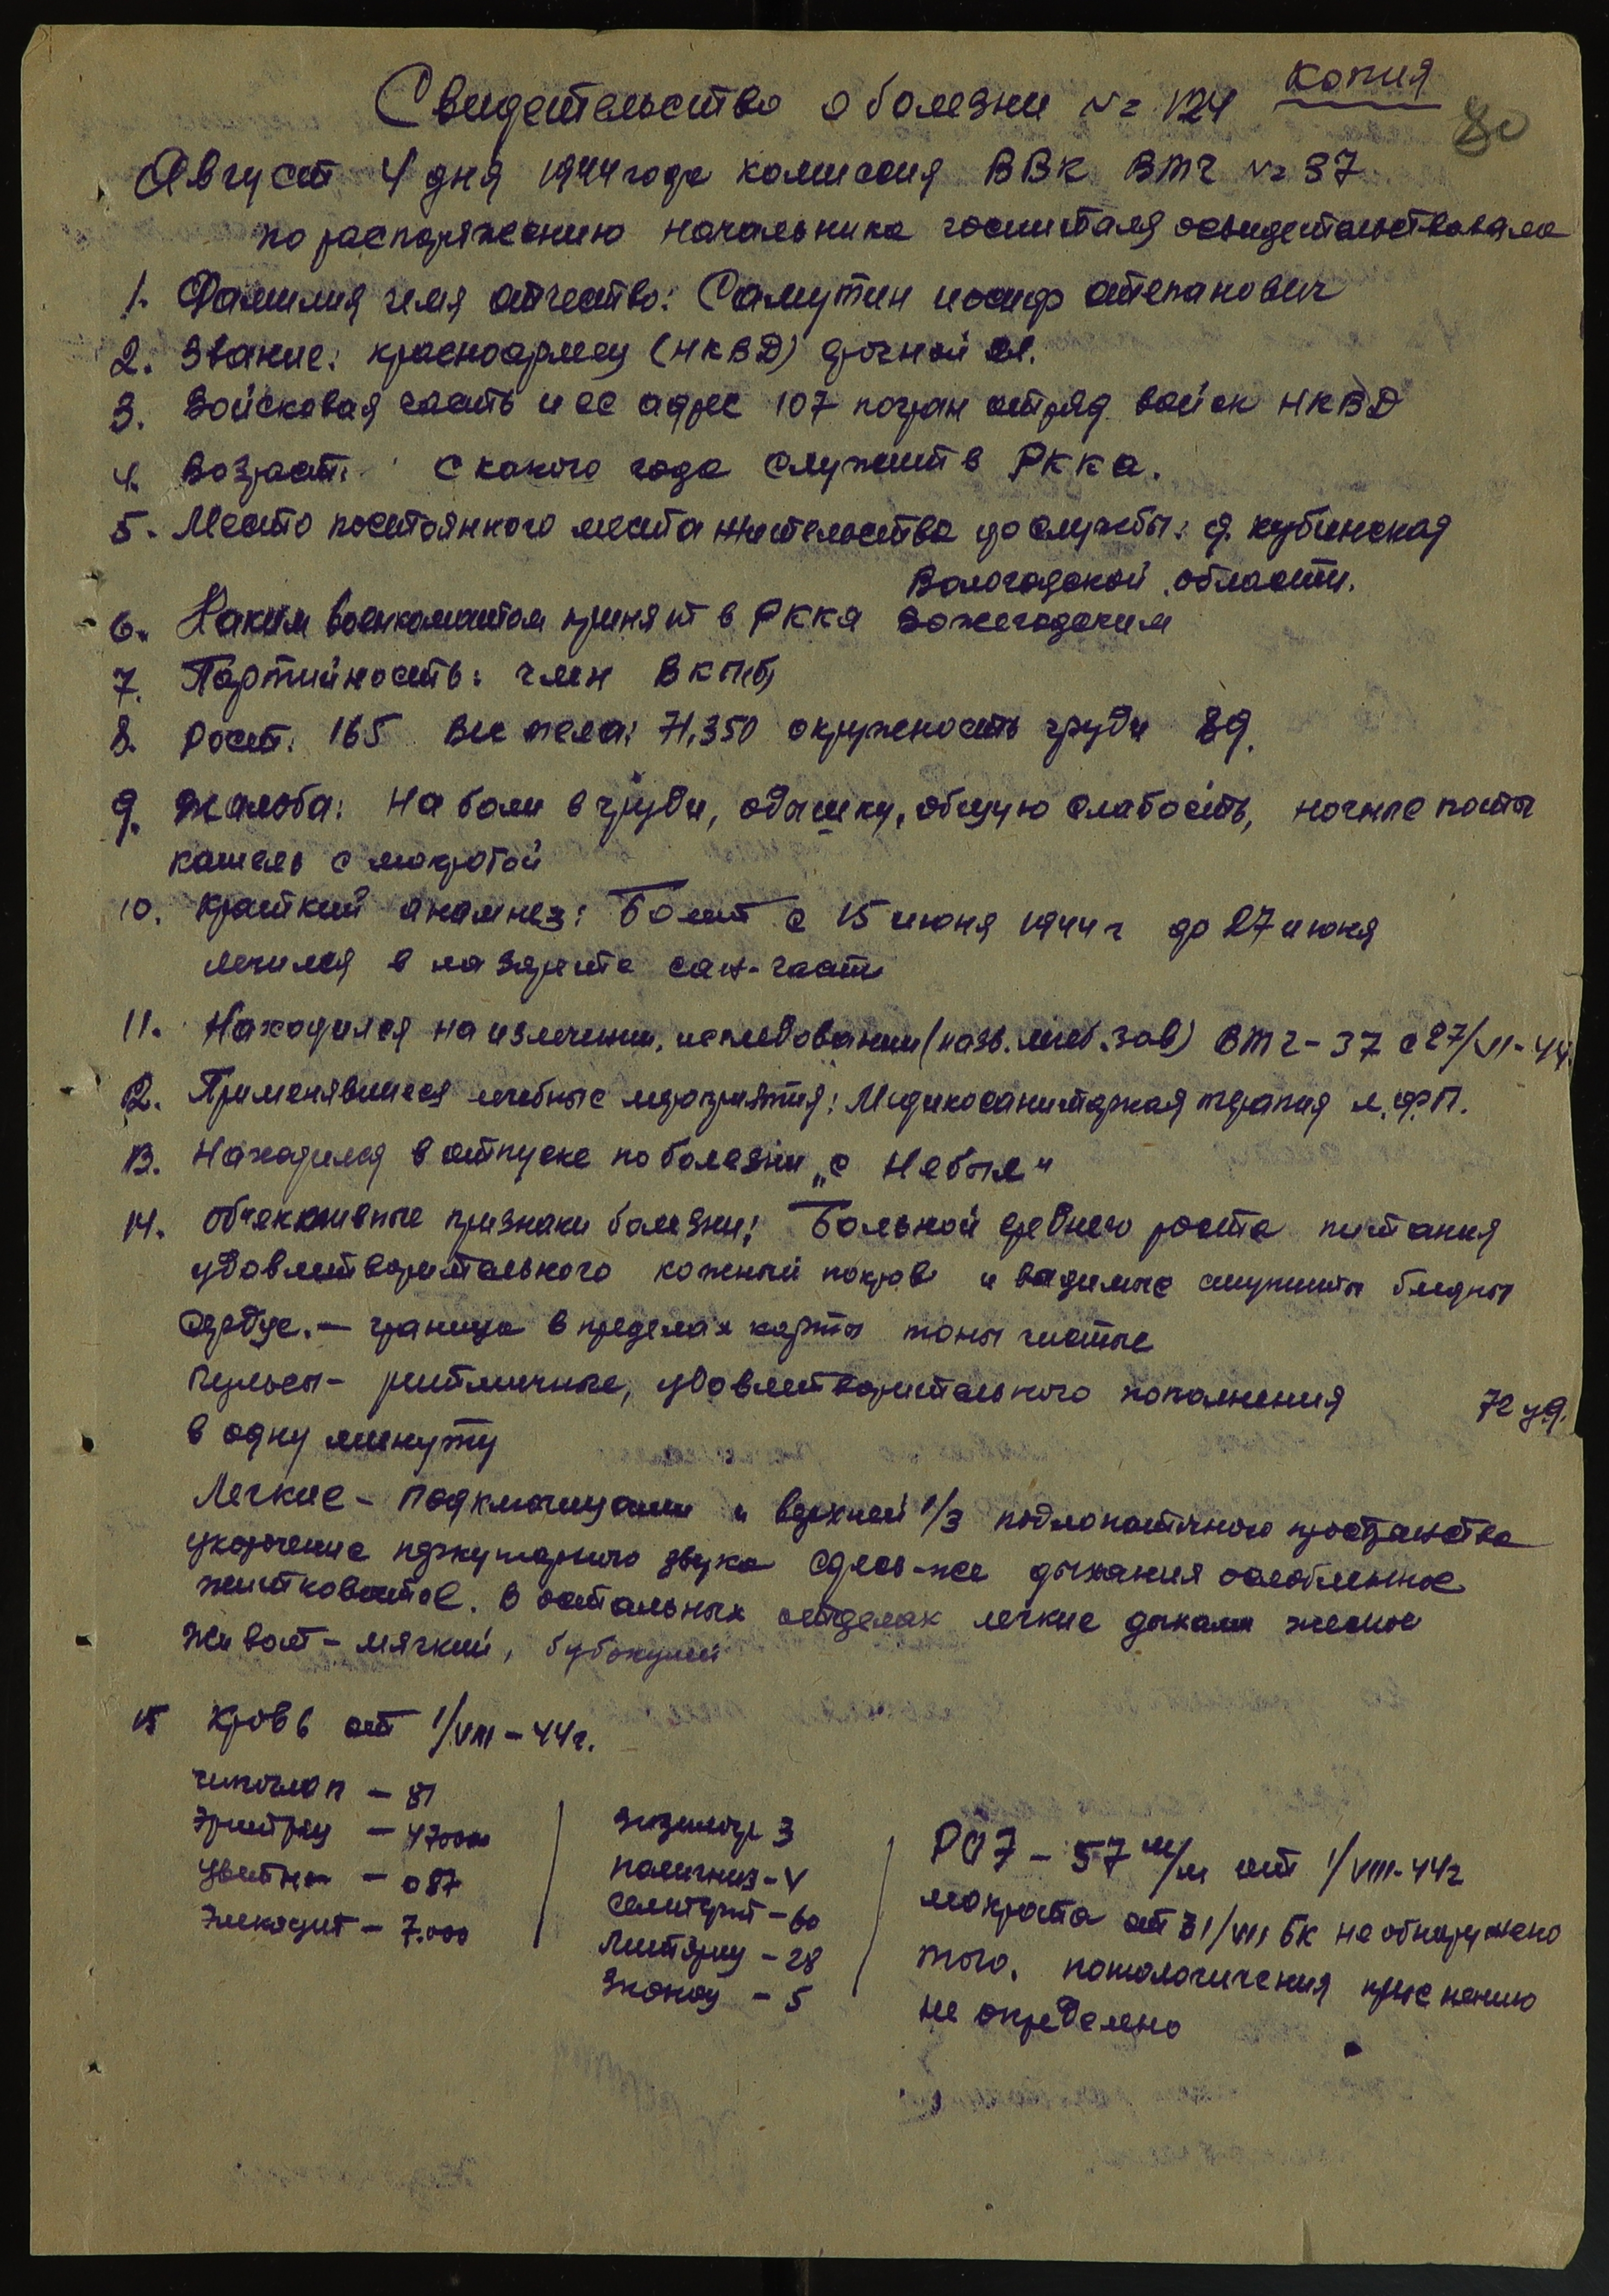 копия
Свидетельство о болезни № 124
80
Август 4 дня 1944 года комиссия ВВК ВТГ № 37
по распоряжению начальника госпиталя освидетельствовала
1. Фамилия имя отчество: Самутин иосиф степанович
2. Звание: красноармеец (НКВД)
3. Войсковая часть и ее адрес 107 погран отряд войск НКВД
4. Возраст: с какого года служит в РККА.
5. Место постоянного места жительства до службы: д. кубинская
Вологодской области.
6. Каким военкоматом принят в РККА Вожегодским
7. Партийность: член ВКП(б)
8. Рост: 165 Вес тела: 71,350 окружность груди 89.
9. Жалоба: На боли в груди, одышку, общую слабость, ночные поты
кашель с мокротой
10. Краткий анамнез: Болит с 15 июня 1944 г до 27 июня
лечился в лазарите сан-части
11. Находился на излечении, исследовании (назв. леч. зав) ВТГ-37 с 27/VI-44.
12. Применявшиеся лечебные мероприятия: Медикосанитарная терапия
13. Находился в отпуске по болезни „с Небыл"
14. Объективные признаки болезни: Больной среднего роста питания
удовлетворительного кожный покров и видимые слизисты бледны
Сердце. — граница в пределах нормы тоны чистые
Пульсы - ритмичные, удовлетворительного наполнения 72 уд.
в одну минуту
Легкие - Подключицами и верхней 1/3 подлопаточного пространства
укорочение перкуторного звука сдесь-же дыхания ослобленное
В остальных отделах легкие
Живот - мягкий,
15 Кровь от 1/VIII-44г.
— 81
Эритроц — 47000
Цветн — 087
— 7.000
3
- V
- 60
- 28
- 5
РОЭ - 57 м/м от 1/VIII-44г
мокрота от 31/VII БК не обнаружено
того, патологичения
не определено